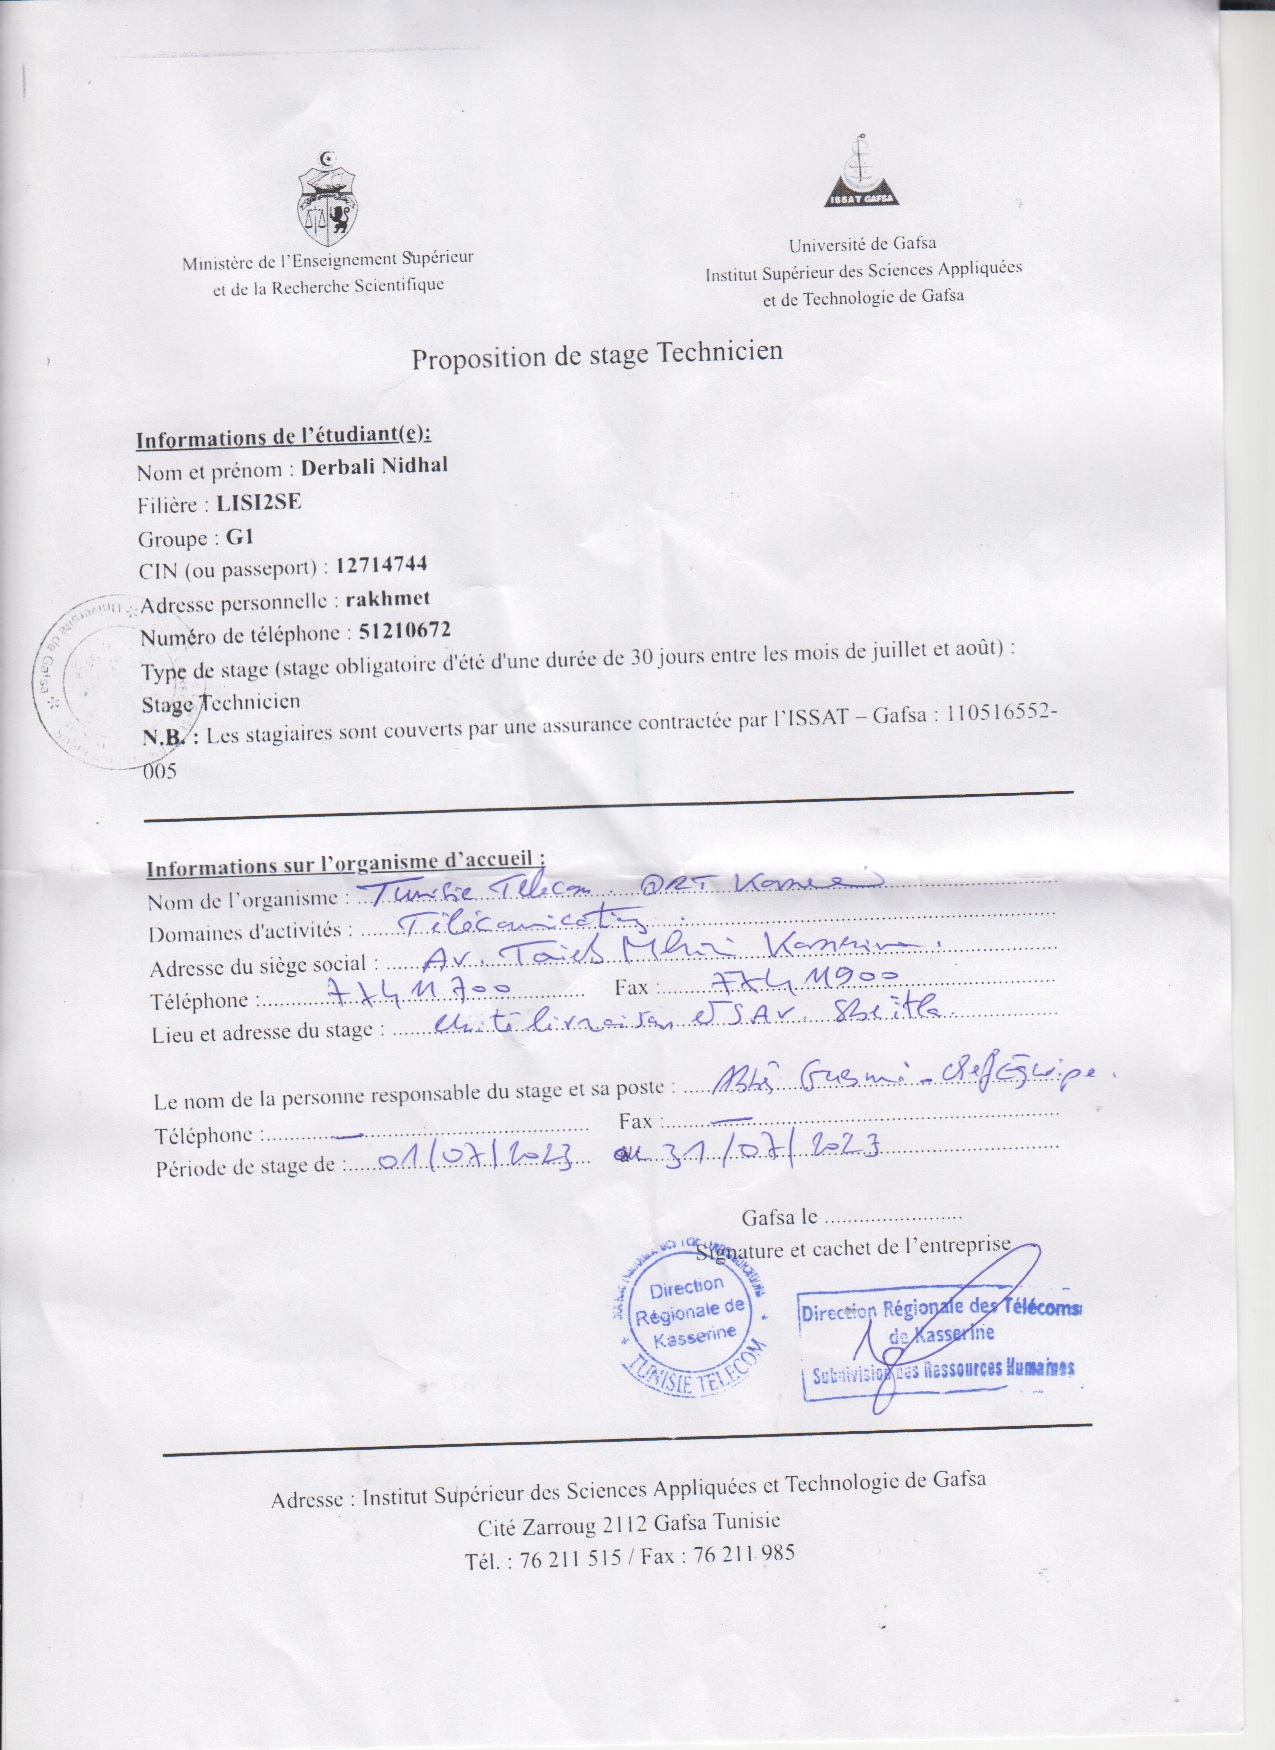 ISSAT GAFSA
Ministère de l'Enseignement Supérieur
et de la Recherche Scientifique
Université de Gafsa
Institut Supérieur des Sciences Appliquées
et de Technologie de Gafsa
Proposition de stage Technicien
Informations de l'étudiant(e):
Nom et prénom : Derbali Nidhal
Filière : LISI2SE
Groupe : G1
CIN (ou passeport) : 12714744
Adresse personnelle : rakhmet
Numéro de téléphone : 51210672
Type de stage (stage obligatoire d'été d'une durée de 30 jours entre les mois de juillet et août) :
Stage Technicien
N.B. : Les stagiaires sont couverts par une assurance contractée par l'ISSAT – Gafsa : 110516552-
005
Université de Gafsa
Informations sur l'organisme d'accueil :
Nom de l'organisme : Tunisie Télécom. DRT
Domaines d'activités :
Adresse du siège social : Av. Taieb Mhiri Kasserine.
Téléphone : 77411700 Fax : 77411900
Lieu et adresse du stage : Unité livraison et SAV. Sbeitla.
Le nom de la personne responsable du stage et sa poste : chef Equipe.
Téléphone : — Fax : —
Période de stage de : 01/07/2023 au 31/07/2023
Gafsa le ........................
Signature et cachet de l'entreprise
Direction
Régionale de
Kasserine
TUNISIE TELECOM
Direction Régionale des Télécoms
de Kasserine
Subdivision des Ressources Humaines
Adresse : Institut Supérieur des Sciences Appliquées et Technologie de Gafsa
Cité Zarroug 2112 Gafsa Tunisie
Tél. : 76 211 515 / Fax : 76 211 985